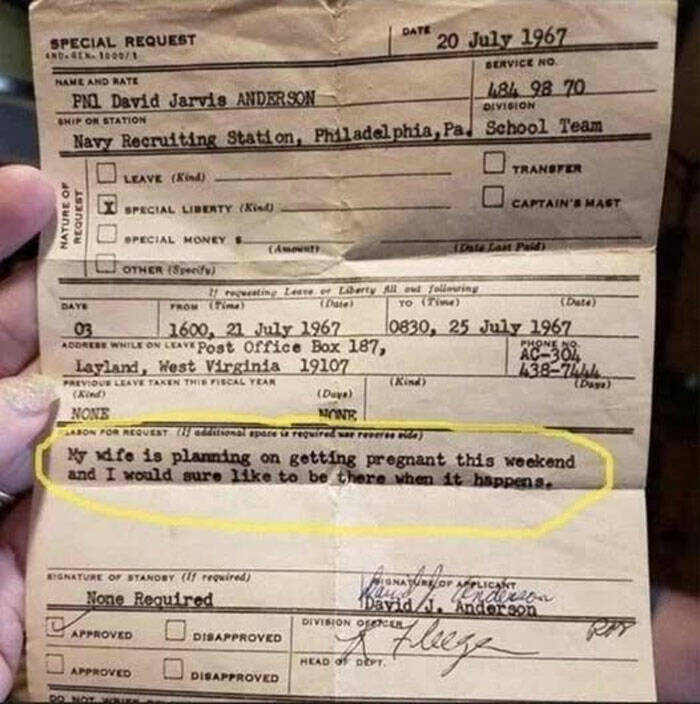 SPECIAL REQUEST
DATE 20 July 1967
NAME AND RATE
SERVICE NO.
PN1 David Jarvis ANDERSON
484 98 70
SHIP OR STATION
DIVISION
Navy Recruiting Station, Philadelphia, Pa. School Team
NATURE OF REQUEST
LEAVE (Kind)
TRANSFER
X SPECIAL LIBERTY (Kind)
CAPTAIN'S MAST
SPECIAL MONEY $
(Amount)
(Date Last Paid)
OTHER (Specify)
If requesting Leave or Liberty fill out following
DAYS
FROM (Time) (Date)
TO (Time) (Date)
03
1600, 21 July 1967
0830, 25 July 1967
ADDRESS WHILE ON LEAVE Post Office Box 187,
PHONE NO.
AC-304
Layland, West Virginia 19107
438-7444
PREVIOUS LEAVE TAKEN THIS FISCAL YEAR
(Kind) (Days) (Kind) (Days)
NONE NONE
REASON FOR REQUEST (If additional space is required use reverse side)
My wife is planning on getting pregnant this weekend
and I would sure like to be there when it happens.
SIGNATURE OF STANDBY (If required)
SIGNATURE OF APPLICANT
None Required
David J. Anderson
David J. Anderson
APPROVED DISAPPROVED
DIVISION OFFICER
APPROVED DISAPPROVED
HEAD OF DEPT.
DO NOT WRITE